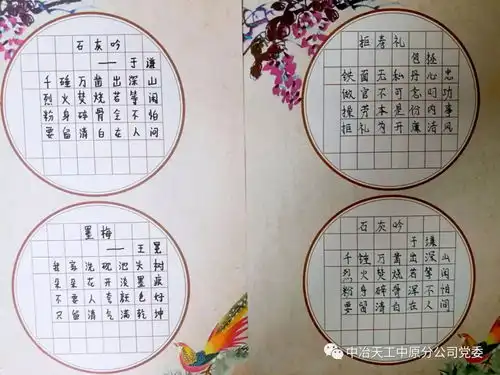 石灰吟
——于谦
千锤万凿出深山
烈火焚烧若等闲
粉身碎骨全不怕
要留清白在人间
墨梅
——王冕
我家洗砚池头树
朵朵花开淡墨痕
不要人夸颜色好
只留清气满乾坤
拒寿礼
包拯
铁面无私丹心忠
做官不可念叨功
操劳本是份内事
拒礼为开廉洁风
石灰吟
于谦
千锤万凿出深山
烈火焚烧若等闲
粉身碎骨浑不怕
要留清白在人间
中冶天工中原分公司党委